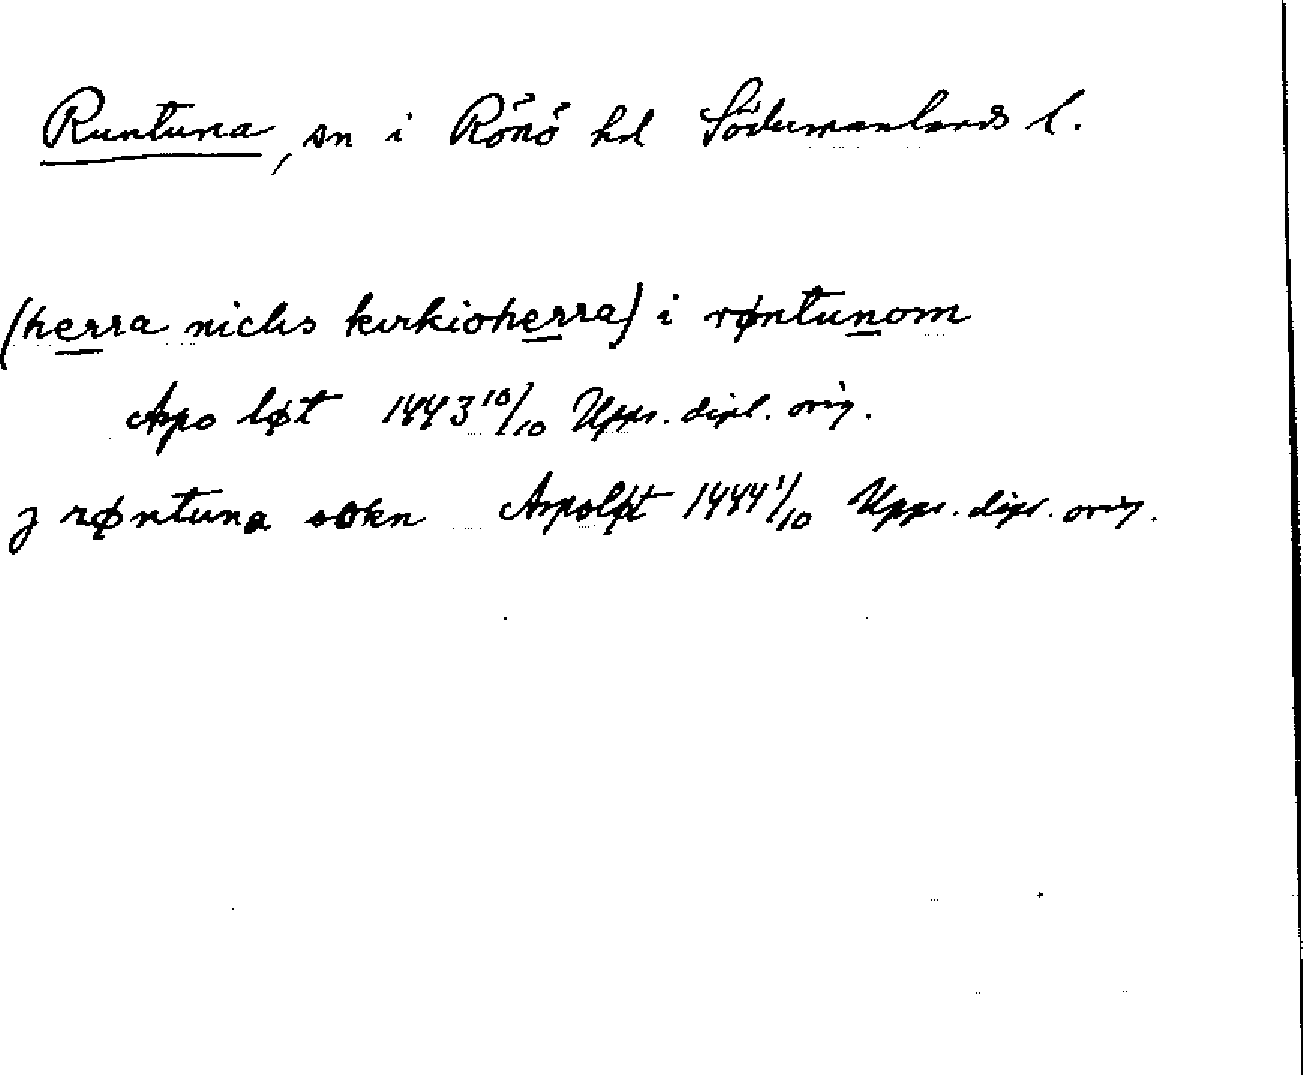 Runtuna, sn i Rönö hd Södermanlands l.
(herra niclis kirkioherra) i røntunom
Aspo løt 1443 10/10 Upps. dipl. orig.
j røntuna sokn Aspoløt 1444 1/10 Upps. dipl. orig.